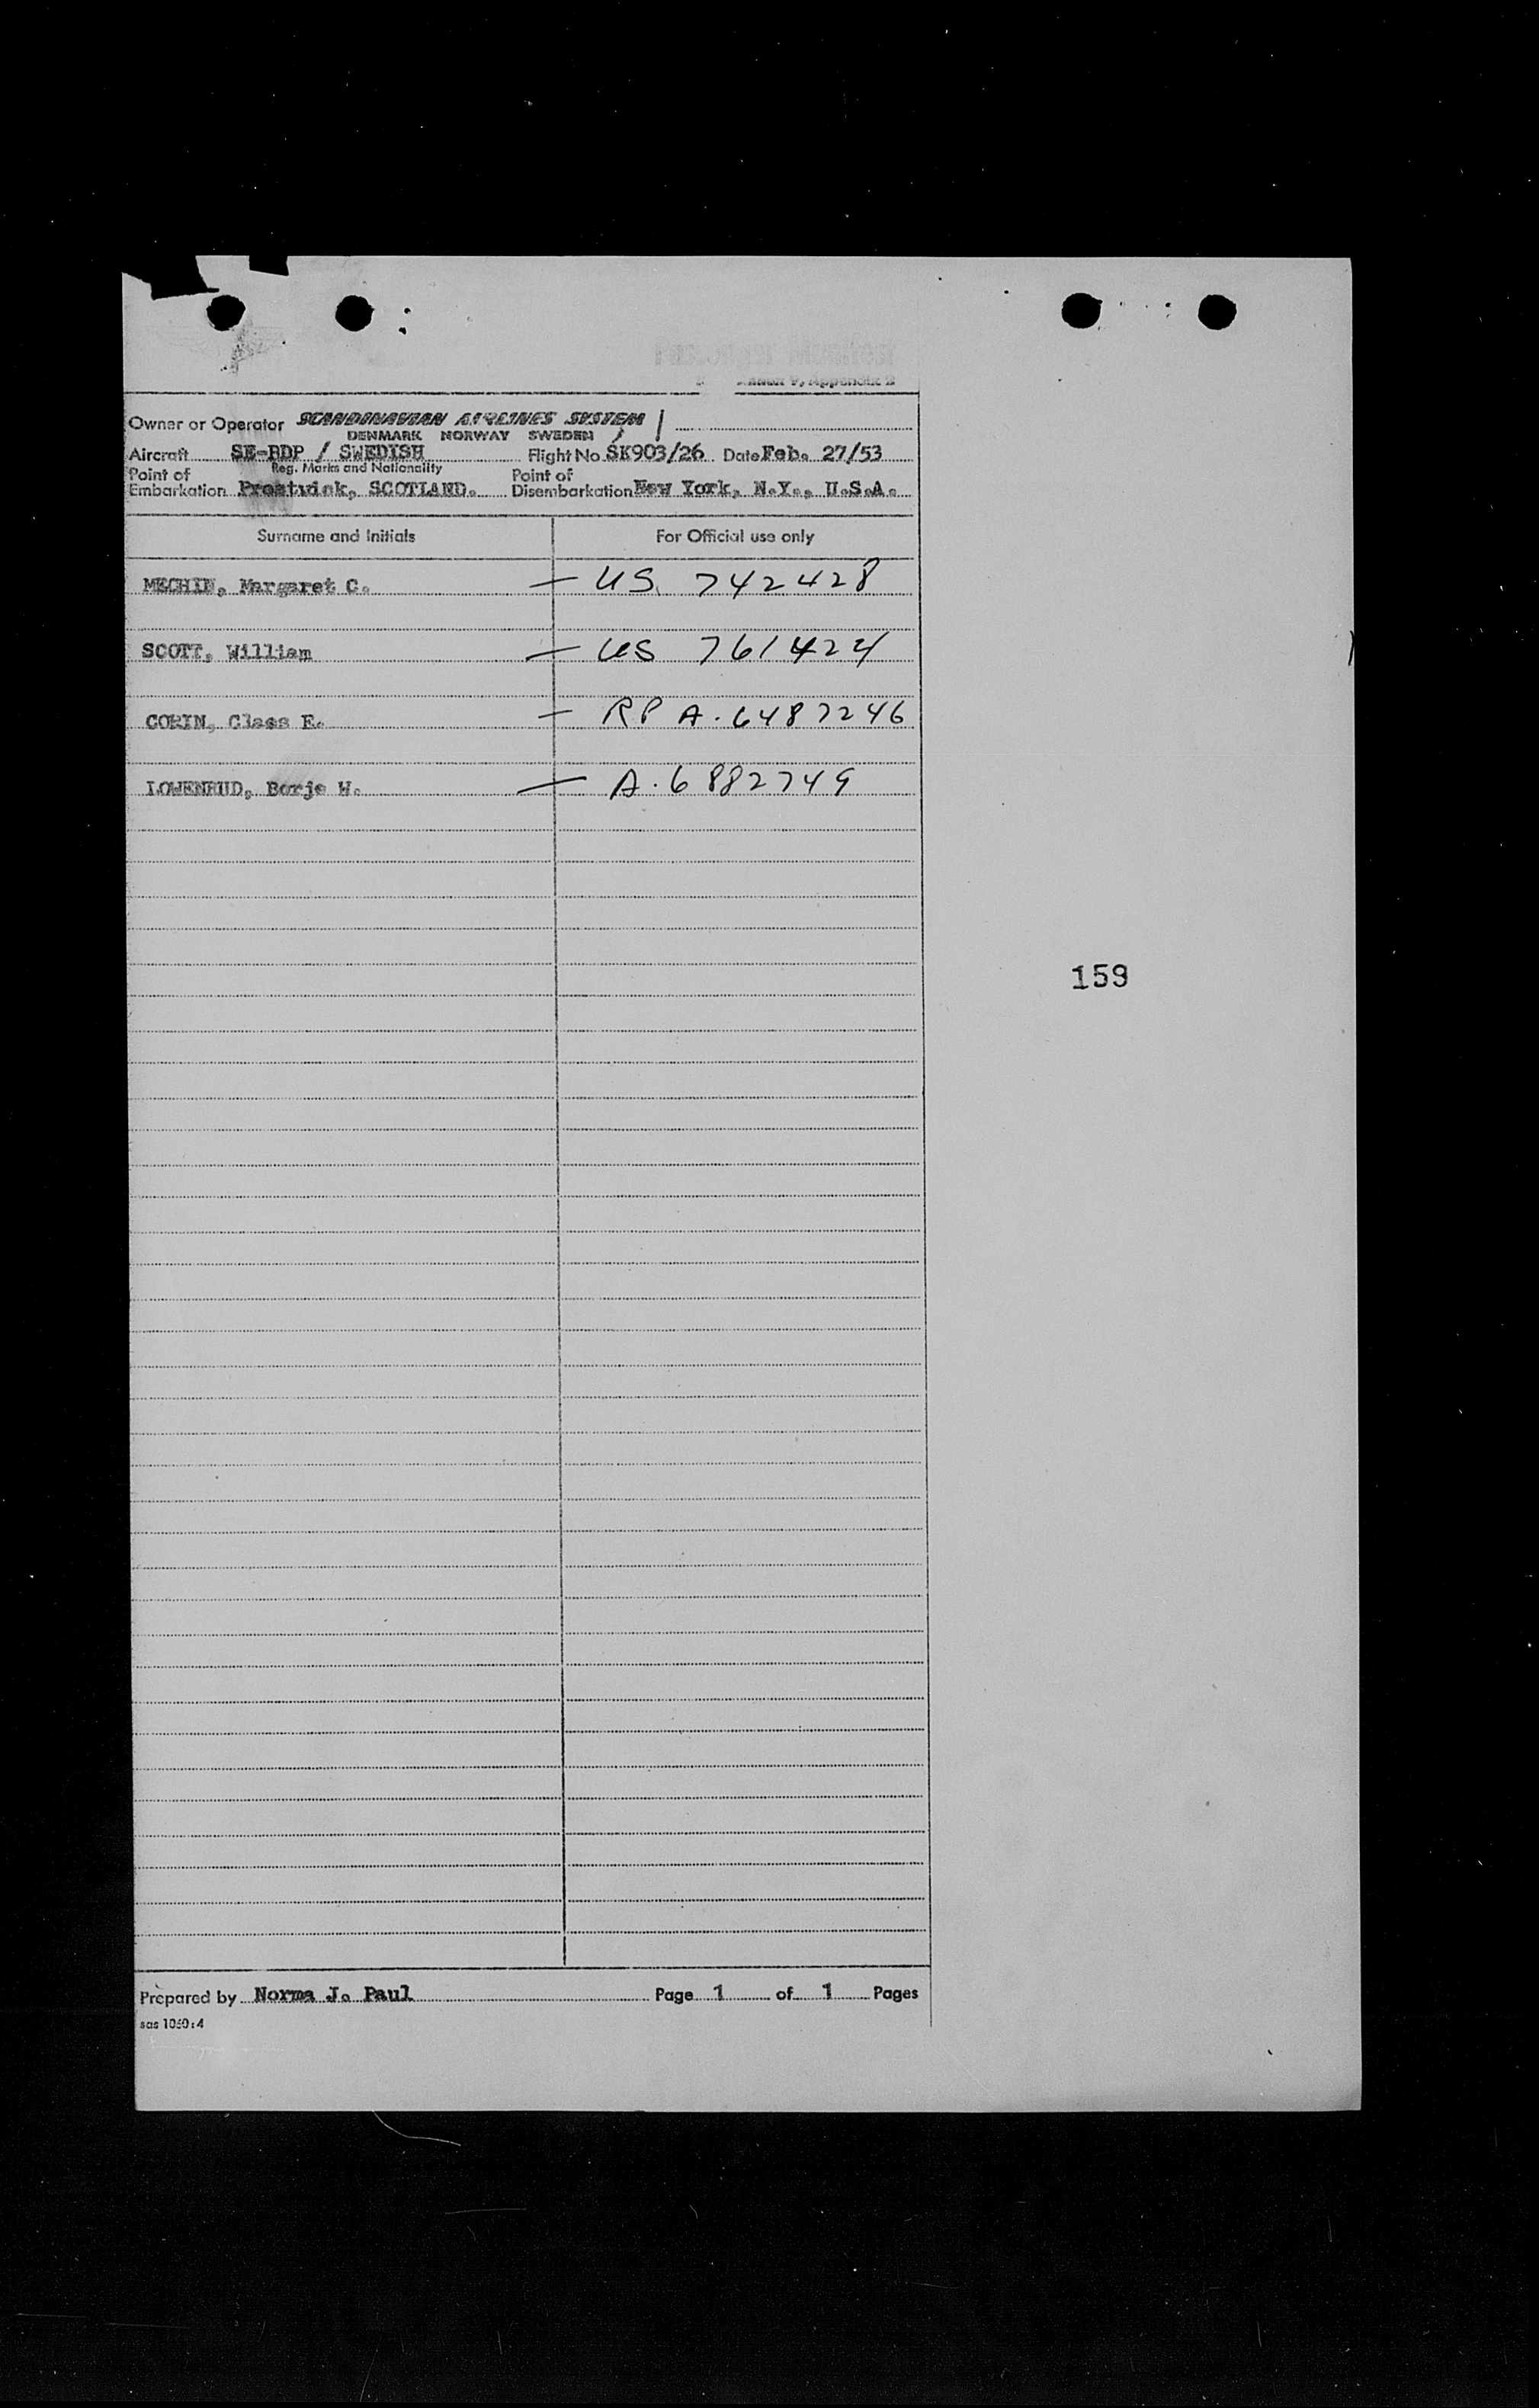 Annex 9, Appendix 2
Owner or Operator SCANDINAVIAN AIRLINES SYSTEM
DENMARK NORWAY SWEDEN
Aircraft SE-BDP / SWEDISH Flight No SK903/26 Date Feb. 27/53
Reg. Marks and Nationality
Point of Embarkation Prestwick, SCOTLAND. Point of Disembarkation New York, N.Y., U.S.A.
Surname and Initials For Official use only
MECHIN, Margaret C. — US. 742428
SCOTT, William — US 761424
CORIN, Claes E. — RP A. 6487246
LOWENRUD, Borje W. — A. 6882749
159
Prepared by Norma J. Paul Page 1 of 1 Pages
sas 1050:4